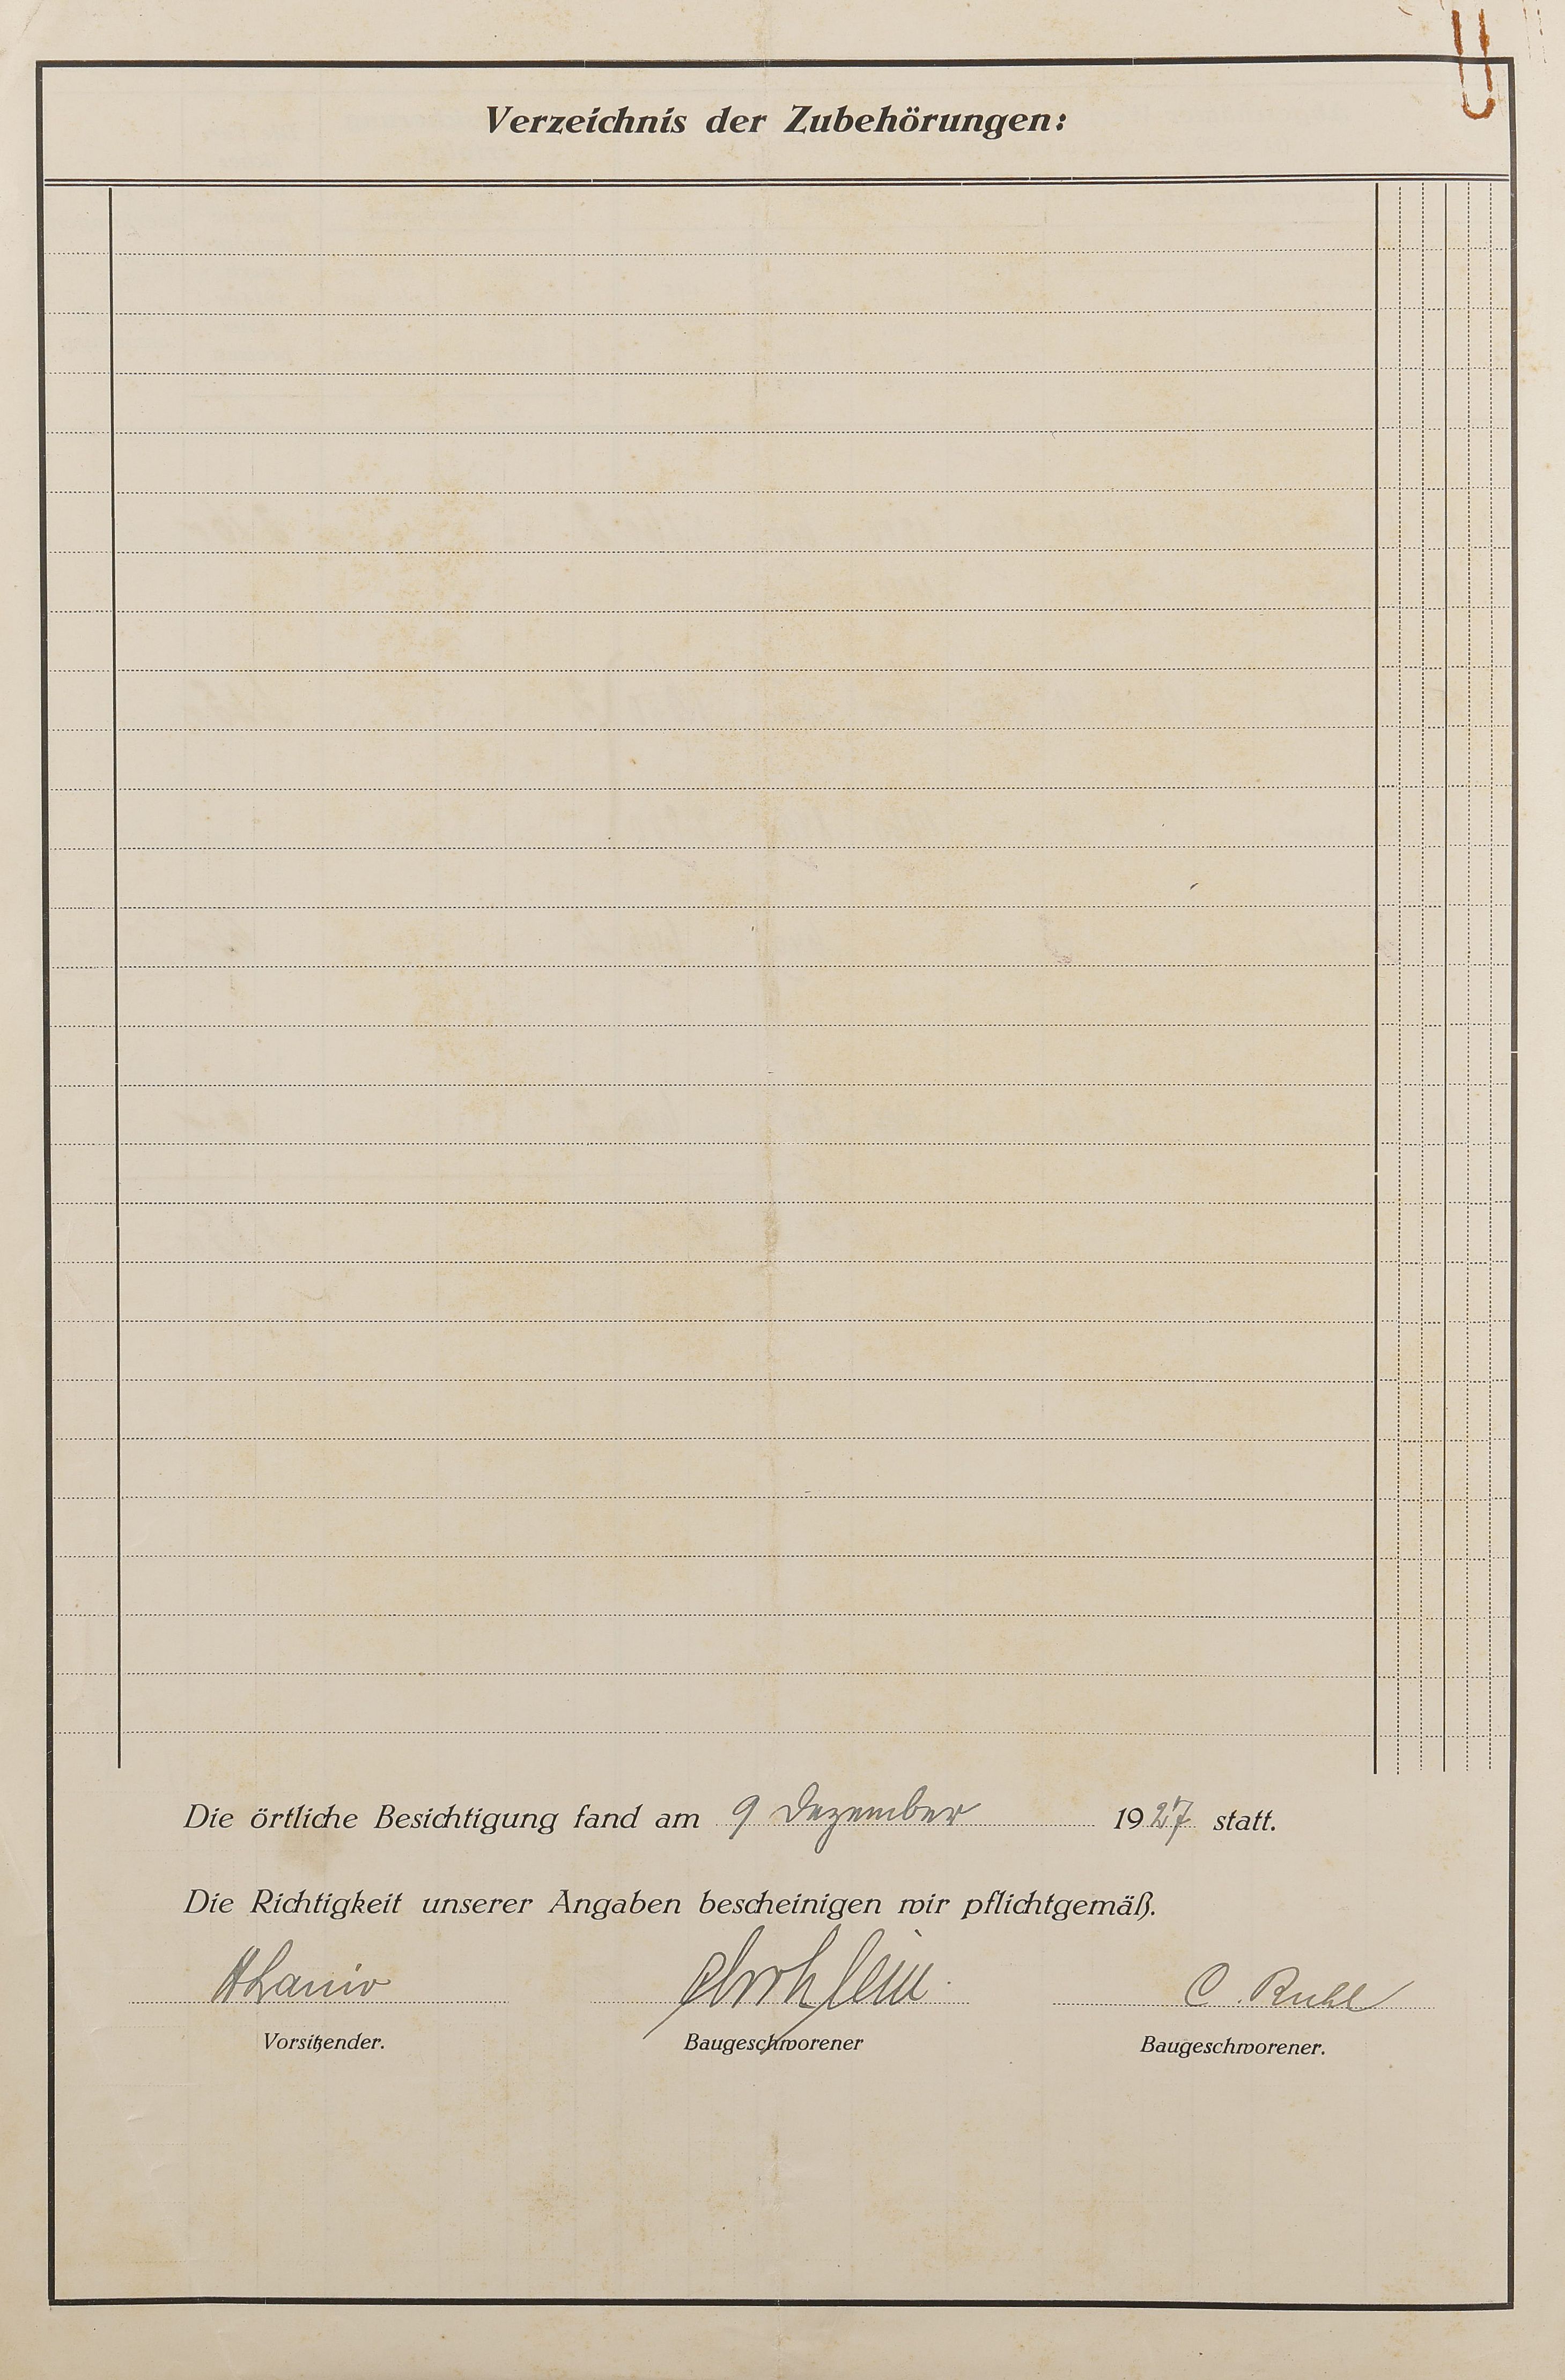 Verzeichnis der Zubehörungen:
Die örtliche Besichtigung fand am 9 Dezember 1927 statt.
Die Richtigkeit unserer Angaben bescheinigen wir pflichtgemäß.
C. Ruhl
Vorsitzender. Baugeschworener Baugeschworener.